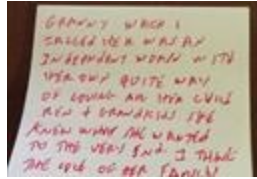 GRANNY WHICH I
CALLED HER WAS AN
INDEPENDENT WOMAN WITH
HER OWN QUITE WAY
OF LOVING ALL HER CHILD
REN & GRANDKIDS SHE
KNEW WHAT SHE WANTED
TO THE VERY END I THINK
THE LOVE OF HER FAMILY